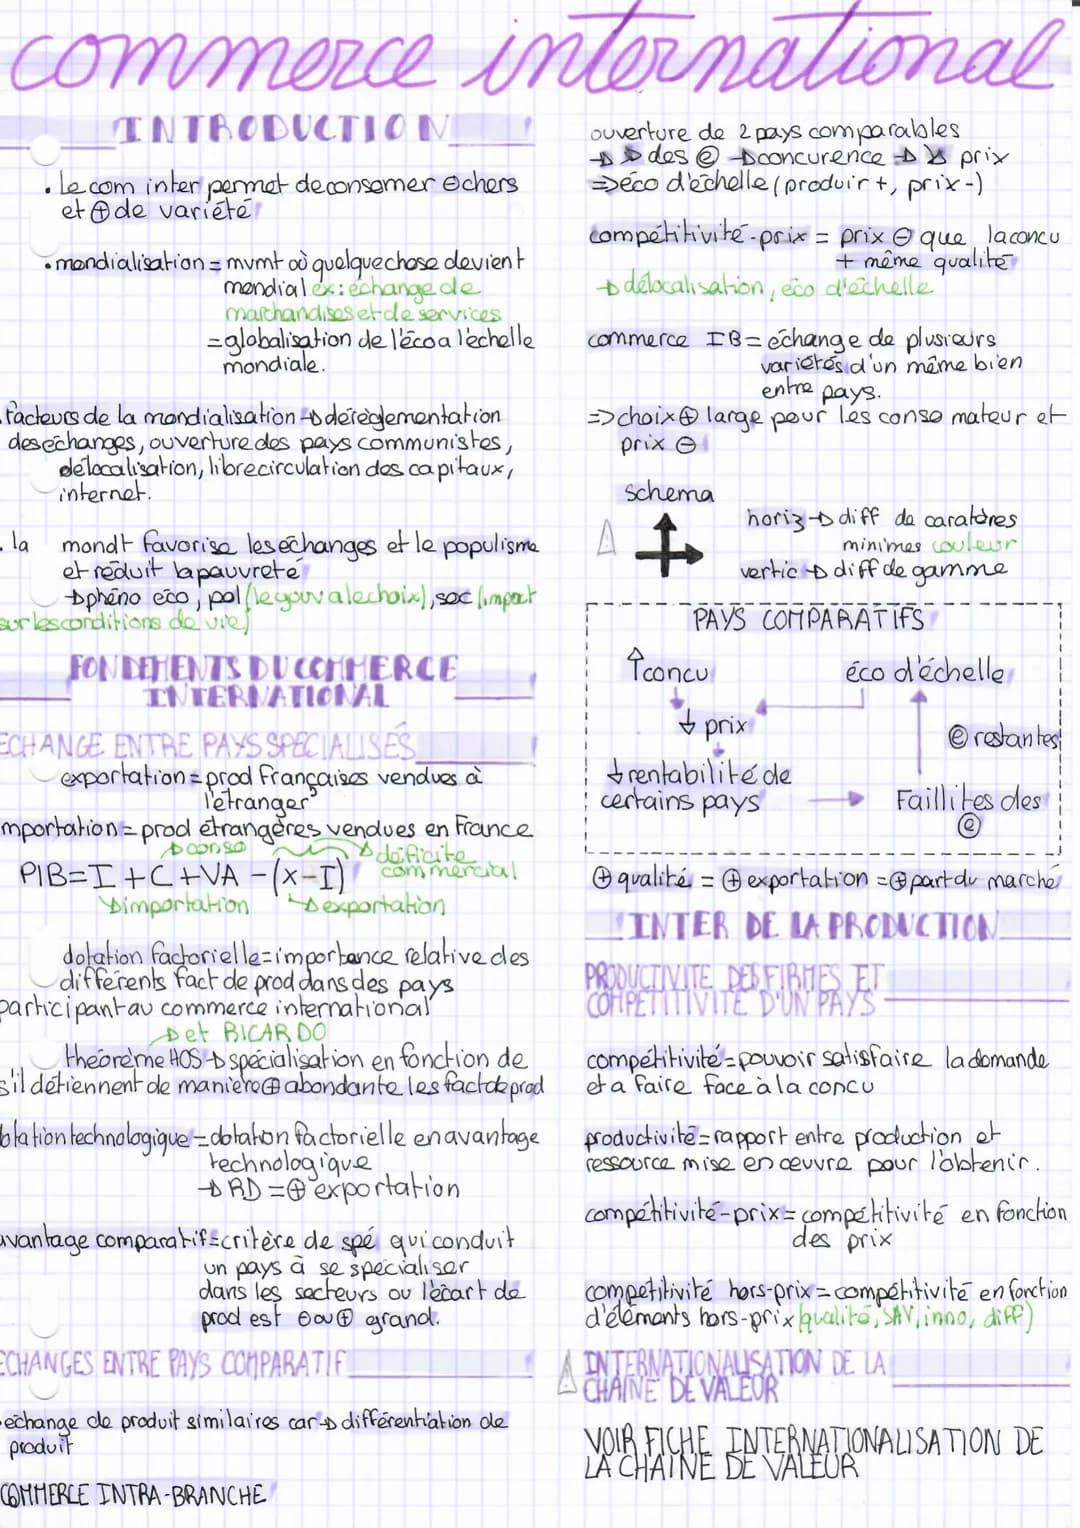 commerce international
INTRODUCTION
• Le com inter permet de consomer ⊖ chers
et ⊕ de variété
• mondialisation = mvmt où quelque chose devient
mondial ex: échange de
marchandises et de services
= globalisation de l'éco a l'échelle
mondiale.
• facteurs de la mondialisation → déréglementation
des echanges, ouverture des pays communistes,
délocalisation, libre circulation des capitaux,
internet.
• la mondt favorise les échanges et le populisme
et réduit la pauvreté
→ phéno eco, pol (le gouv a le choix), soc (impact
sur les conditions de vie)
FONDEMENTS DU COMMERCE
INTERNATIONAL
ECHANGE ENTRE PAYS SPECIALISÉS
exportation = prod françaises vendues à
l'étranger
importation = prod étrangères vendues en France
→ conso
→ déficite
commercial
PIB = I + C + VA - (X-I)
→ importation → exportation
dotation factorielle = importance relative des
différents fact de prod dans des pays
participant au commerce international
→ et RICARDO
théorème HOS → spécialisation en fonction de
s'il détiennent de manière ⊕ abondante les fact de prod
dotation technologique = dotation factorielle en avantage
technologique
→ RD = ⊕ exportation
avantage comparatif = critère de spé qui conduit
un pays à se spécialiser
dans les secteurs ou l'écart de
prod est ⊖ ou ⊕ grand.
ECHANGES ENTRE PAYS COMPARATIF
• echange de produit similaires car → différentiation de
produit
COMMERCE INTRA-BRANCHE
ouverture de 2 pays comparables
→ ↗ des ⓔ → concurence → ↘ prix
=> éco d'échelle (produir +, prix -)
compétitivité-prix = prix ⊖ que la concu
+ même qualité
→ délocalisation, éco d'échelle
commerce IB = échange de plusieurs
variétés d'un même bien
entre pays.
=> choix ⊕ large pour les consomateur et
prix ⊖
schema
horiz → diff de caratères
minimes couleur
vertic → diff de gamme
PAYS COMPARATIFS
↑ concu
éco d'échelle
↓ prix
ⓔ restantes
↓ rentabilité de
certains pays
Faillites des
ⓔ
⊕ qualité = ⊕ exportation = ⊕ part du marché
INTER DE LA PRODUCTION
PRODUCTIVITE DES FIRMES ET
COMPETITIVITE D'UN PAYS
compétitivité = pouvoir satisfaire la demande
et a faire face à la concu
productivité = rapport entre production et
ressource mise en œuvre pour l'obtenir.
compétitivité-prix = compétitivité en fonction
des prix
competitivité hors-prix = compétitivité en fonction
d'éléments hors-prix (qualité, SAV, inno, diff)
INTERNATIONALISATION DE LA
CHAINE DE VALEUR
VOIR FICHE INTERNATIONALISATION DE
LA CHAINE DE VALEUR